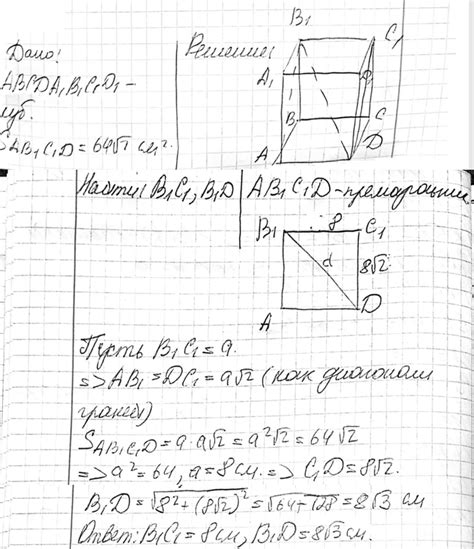 Дано:
ABCDA₁B₁C₁D₁ –
куб.
S AB₁C₁D = 64√2 см².
Решение:
B₁
C₁
A₁
B
C
A
D
Найти: B₁C₁, B₁D
AB₁C₁D – прямоугольник.
B₁
8
C₁
d
8√2
A
D
Пусть B₁C₁ = a.
=> AB₁ = DC₁ = a√2 (как диагонали
граней)
S AB₁C₁D = a · a√2 = a²√2 = 64√2
=> a² = 64, a = 8 см. => C₁D = 8√2.
B₁D = √(8² + (8√2)²) = √(64 + 128) = 8√3 см
Ответ: B₁C₁ = 8 см, B₁D = 8√3 см.